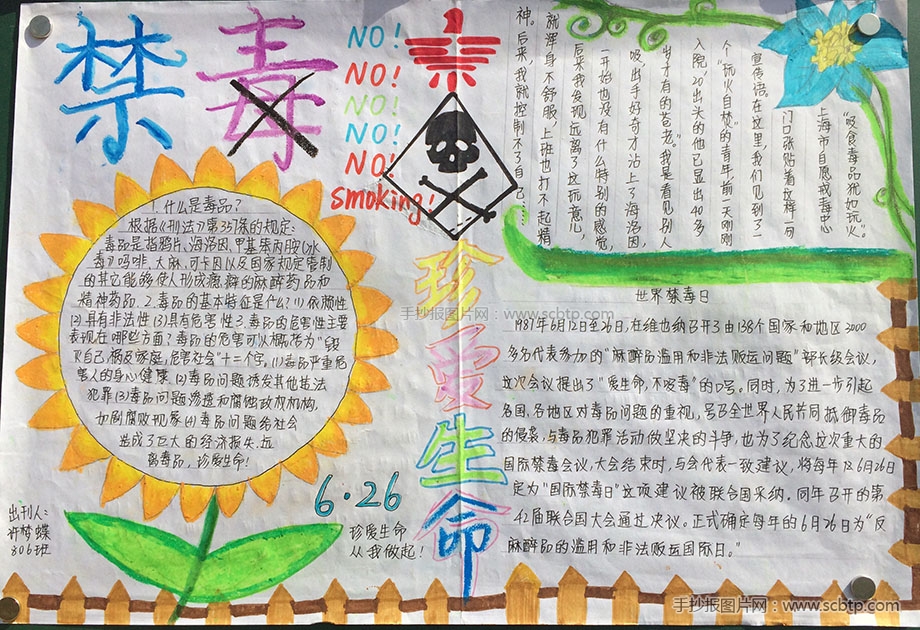 禁毒
NO!
NO!
NO!
NO!
NO!
smoking!
1.什么是毒品?
根据《刑法》第357条的规定:
毒品是指鸦片、海洛因、甲基苯丙胺(冰
毒)吗啡、大麻、可卡因以及国家规定管制
的其它能够使人形成瘾癖的麻醉药品和
精神药品。2.毒品的基本特征是什么?(1)依赖性
(2)具有非法性(3)具有危害性3.毒品的危害性主要
表现在哪些方面?毒品的危害可以概括为"毁
灭自己,祸及家庭,危害社会"十二个字。(1)毒品严重危
害人的身心健康.(2)毒品问题诱发其他违法
犯罪(3)毒品问题渗透和腐蚀政权机构,
加剧腐败现象(4)毒品问题给社会
造成了巨大的经济损失.远
离毒品,珍爱生命!
出刊人:
许梦蝶
806班
6·26
珍爱生命
从我做起!
珍爱生命
"吸食毒品犹如玩火。"
上海市自愿戒毒中心
门口张贴着这样一句
宣传语。在这里,我们见到了一
个"玩火自焚"的青年,前一天刚刚
入院。20出头的他已显出40多
岁才有的苍老。"我是看见别人
吸,出于好奇才沾上了海洛因,
一开始也没有什么特别的感觉,
后来我发现远离了这玩意儿,
就浑身不舒服,上班也打不起精
神。后来,我就控制不了自己…"
世界禁毒日
1987年6月12日至26日,在维也纳召开3由138个国家和地区3000
多名代表参加的"麻醉品滥用和非法贩运问题"部长级会议,
这次会议提出了"爱生命,不吸毒"的口号。同时,为了进一步引起
各国、各地区对毒品问题的重视,号召全世界人民共同抵御毒品
的侵袭,与毒品犯罪活动做坚决的斗争,也为了纪念这次重大的
国际禁毒会议,大会结束时,与会代表一致建议,将每年的6月26日
定为"国际禁毒日"这项建议被联合国采纳。同年召开的第
42届联合国大会通过决议。正式确定每年的6月26日为"反
麻醉品的滥用和非法贩运国际日。"
手抄报图片网:www.scbtp.com
手抄报图片网:www.scbtp.com